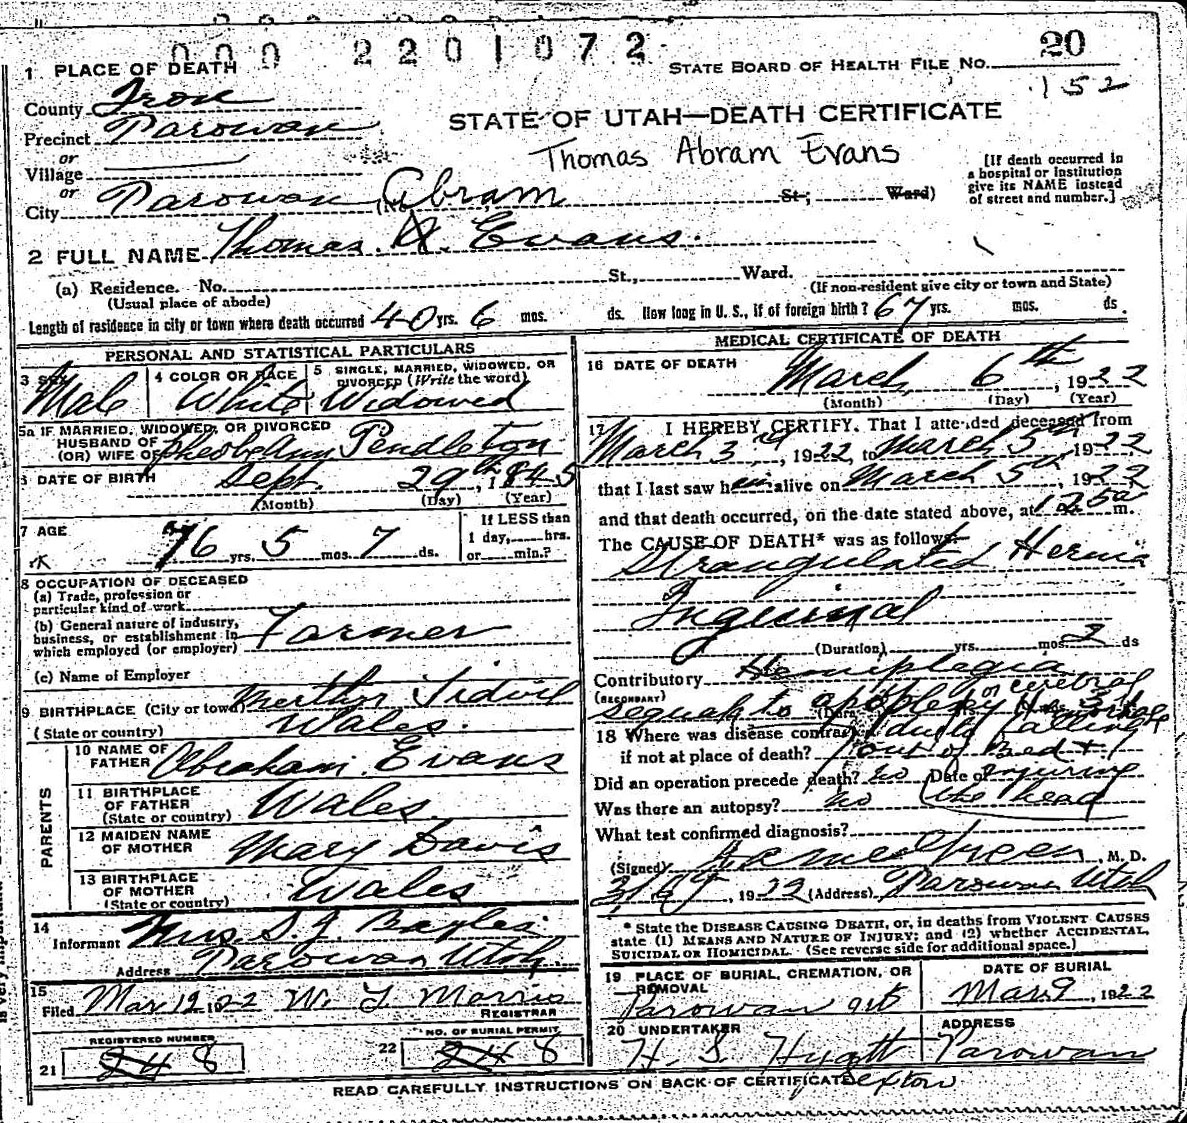 000 2201072
20
STATE BOARD OF HEALTH FILE NO.
152
1 PLACE OF DEATH
County Iron
Precinct Parowan
or
Village
or
City Parowan
STATE OF UTAH—DEATH CERTIFICATE
Thomas Abram Evans
[If death occurred in
a hospital or institution
give its NAME instead
of street and number.]
(No. St.; Ward)
Abram
2 FULL NAME Thomas A. Evans.
(a) Residence. No. St., Ward.
(Usual place of abode)
(If non-resident give city or town and State)
Length of residence in city or town where death occurred 40 yrs. 6 mos. ds. How long in U. S., if of foreign birth? 67 yrs. mos. ds.
PERSONAL AND STATISTICAL PARTICULARS
3 SEX
Male
4 COLOR OR RACE
White
5 SINGLE, MARRIED, WIDOWED, OR
DIVORCED (Write the word)
Widowed
5a IF MARRIED, WIDOWED, OR DIVORCED
HUSBAND OF
(OR) WIFE OF Pheobe Ann Pendleton
6 DATE OF BIRTH Sept. 29th, 1845
(Month) (Day) (Year)
7 AGE
76 yrs. 5 mos. 7 ds.
If LESS than
1 day, hrs.
or min.?
8 OCCUPATION OF DECEASED
(a) Trade, profession or
particular kind of work
(b) General nature of industry,
business, or establishment in
which employed (or employer) Farmer
(c) Name of Employer
9 BIRTHPLACE (City or town) Merthyr Tidvil
(State or country) Wales.
PARENTS
10 NAME OF
FATHER Abraham Evans
11 BIRTHPLACE
OF FATHER
(State or country) Wales.
12 MAIDEN NAME
OF MOTHER Mary Davis
13 BIRTHPLACE
OF MOTHER
(State or country) Wales
14
Informant Mrs. S. J.
Address Parowan Utah
15
Filed Mar 12 1922 W. L. Morris
REGISTRAR
REGISTERED NUMBER
21 248
NO. OF BURIAL PERMIT
22 248
MEDICAL CERTIFICATE OF DEATH
16 DATE OF DEATH
March 6th, 1922
(Month) (Day) (Year)
17 I HEREBY CERTIFY, That I attended deceased from
March 3rd, 1922, to March 5th, 1922
that I last saw him alive on March 5th, 1922
and that death occurred, on the date stated above, at 1 25a m.
The CAUSE OF DEATH* was as follows:
Strangulated Hernia
Inguinal
(Duration) yrs. mos. 2 ds
Contributory Hemiplegia
(SECONDARY)
sequah to apoplexy or cerebral
18 Where was disease contracted
if not at place of death? falling
out of Bed +
Did an operation precede death? no Date of injuring
Was there an autopsy? no the head
What test confirmed diagnosis?
(Signed) James Green, M. D.
1922 (Address) Parowan Utah
* State the DISEASE CAUSING DEATH, or, in deaths from VIOLENT CAUSES
state (1) MEANS AND NATURE OF INJURY; and (2) whether ACCIDENTAL,
SUICIDAL OR HOMICIDAL. (See reverse side for additional space.)
19 PLACE OF BURIAL, CREMATION, OR
REMOVAL
Parowan
DATE OF BURIAL
Mar. 9, 1922
20 UNDERTAKER
H. S. Hyatt
Sexton
ADDRESS
Parowan
READ CAREFULLY INSTRUCTIONS ON BACK OF CERTIFICATE